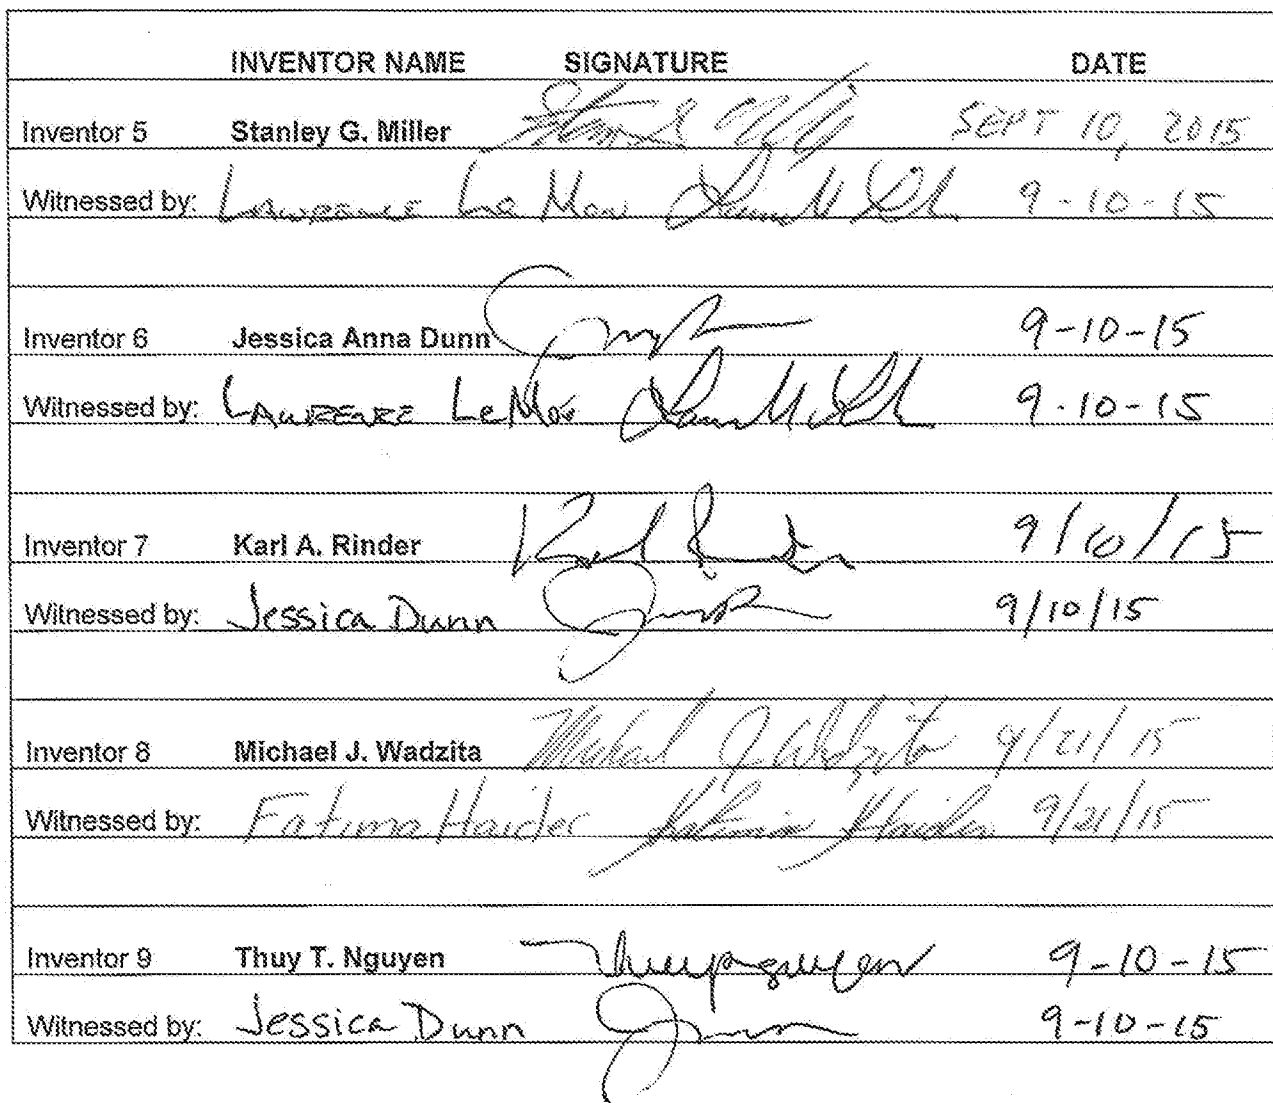 INVENTOR NAME SIGNATURE DATE
Inventor 5 Stanley G. Miller SEPT 10, 2015
Witnessed by: LAWRENCE Le May 9-10-15
Inventor 6 Jessica Anna Dunn 9-10-15
Witnessed by: LAWRENCE LeMay 9-10-15
Inventor 7 Karl A. Rinder Karl Rinder 9/10/15
Witnessed by: Jessica Dunn 9/10/15
Inventor 8 Michael J. Wadzita Michael J. Wadzita 9/21/15
Witnessed by: Fatima Haider Fatima Haider 9/21/15
Inventor 9 Thuy T. Nguyen Thuy Nguyen 9-10-15
Witnessed by: Jessica Dunn 9-10-15